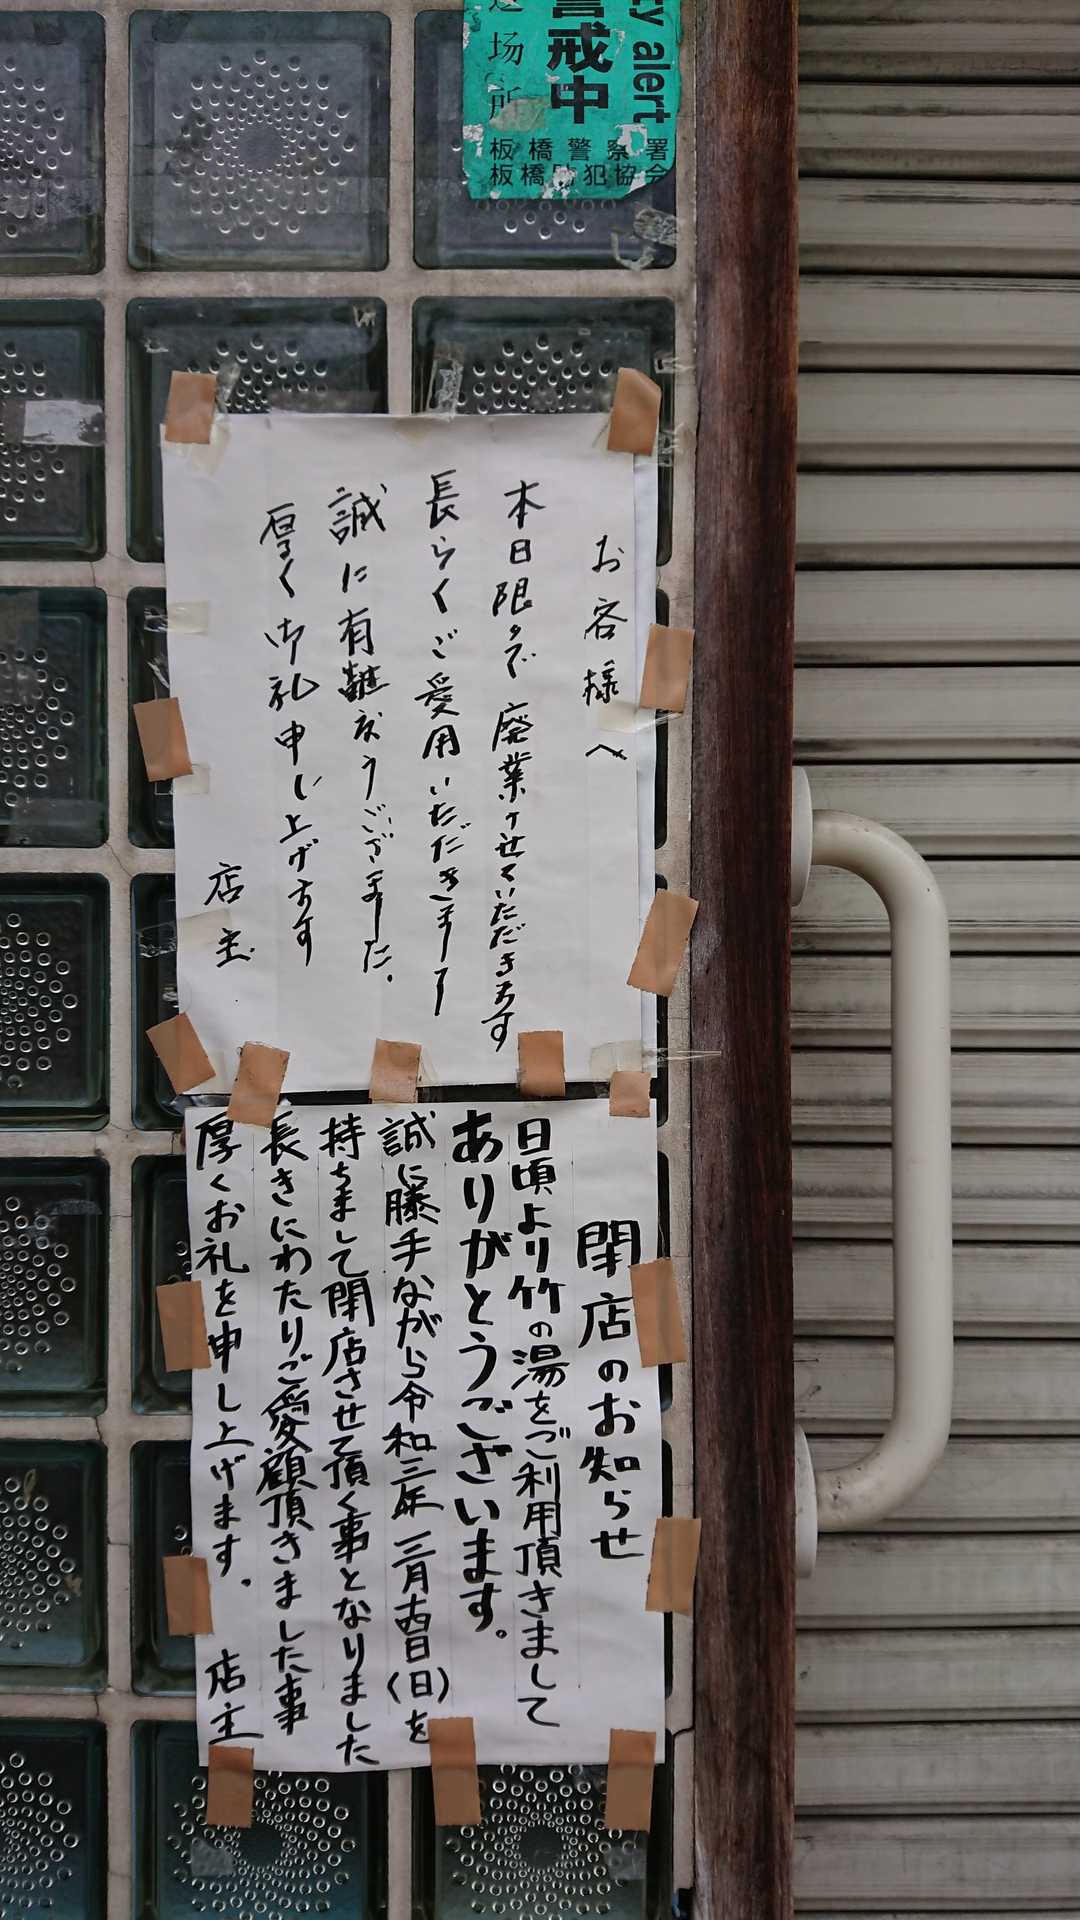 场
所
警戒中
y alert
板橋警察署
板橋防犯協会
お客様へ
本日限りで廃業させていただきます
長らくご愛用いただきまして
誠に有難うございました。
厚く御礼申し上げます
店主
閉店のお知らせ
日頃より竹の湯をご利用頂きまして
ありがとうございます。
誠に勝手ながら令和三年三月十四日(日)を
持ちまして閉店させて頂く事となりました
長きにわたりご愛顧頂きました事
厚くお礼を申し上げます。
店主